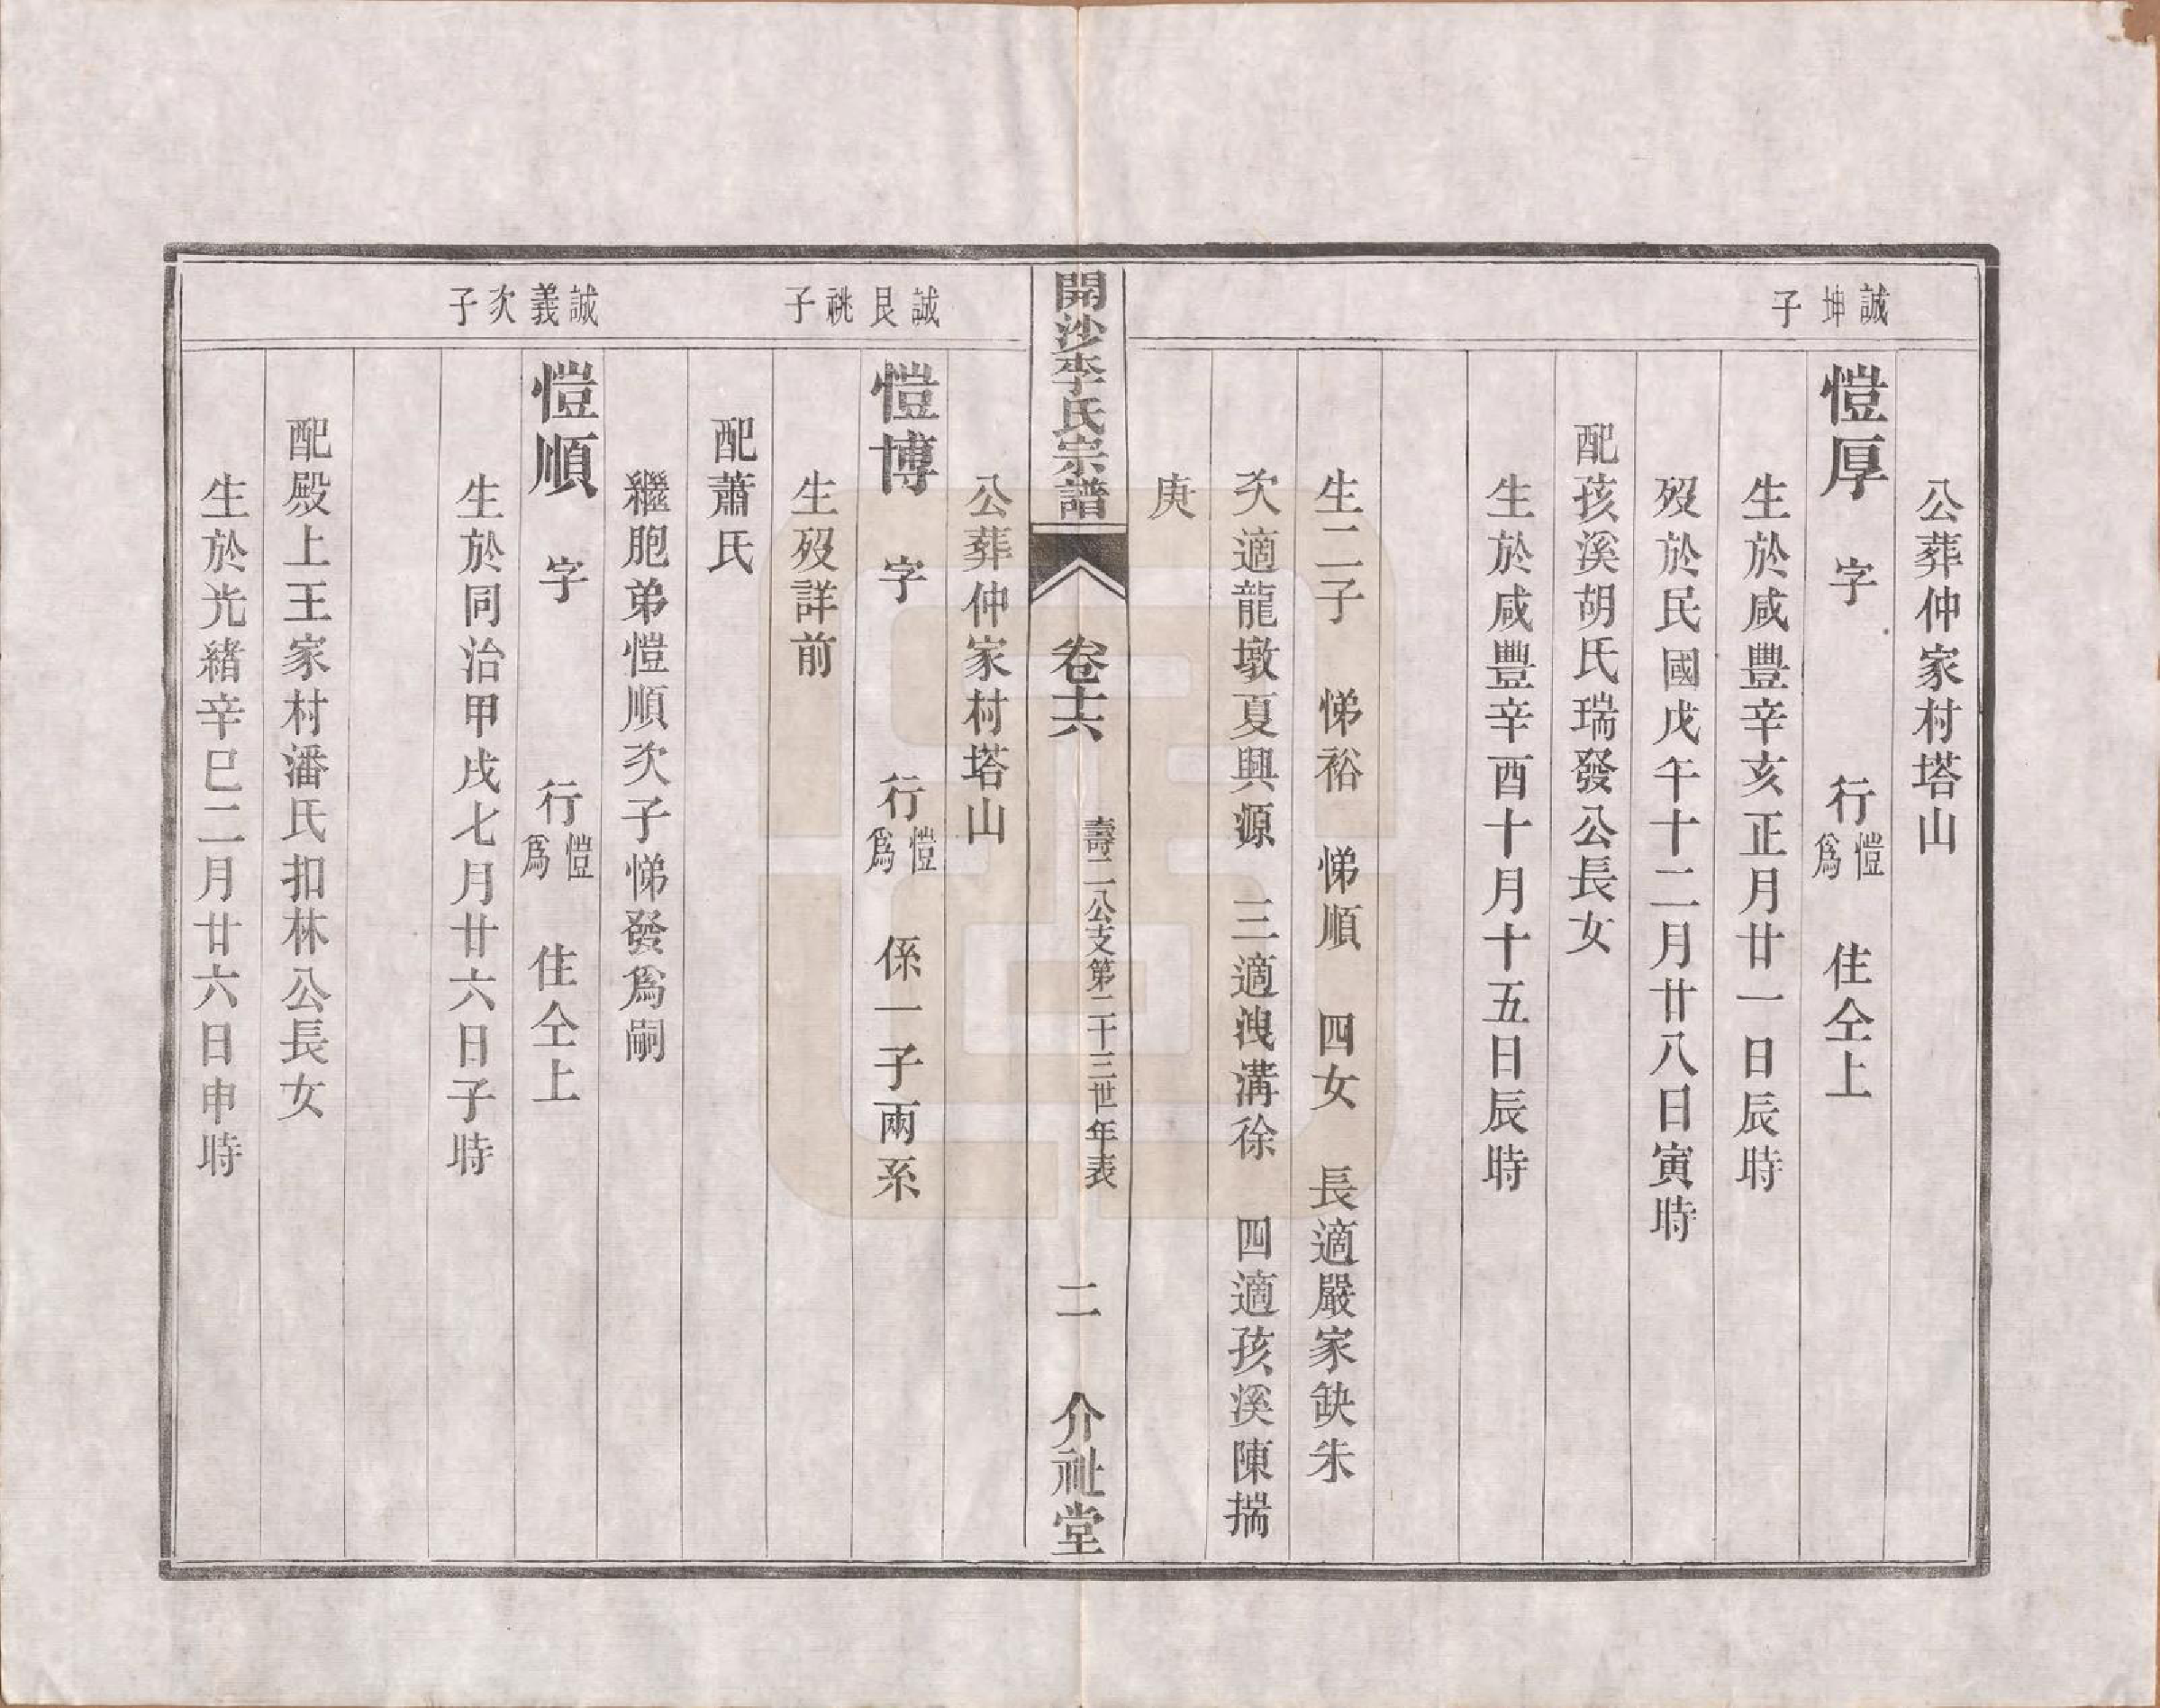 公葬仲家村塔山
誠坤子
愷厚　字　行愷爲　住仝上
生於咸豐辛亥正月廿一日辰時
歿於民國戊午十二月廿八日寅時
配孩溪胡氏瑞發公長女
生於咸豐辛酉十月十五日辰時
生二子　悌裕　悌順　四女　長適嚴家缺朱
次適龍墩夏興源　三適洩溝徐　四適孩溪陳揣
庚
開沙李氏宗譜　卷十六　壽二公支第二十三世年表　二　介祉堂
公葬仲家村塔山
誠艮祧子
愷博　字　行愷爲　係一子兩系
生歿詳前
配蕭氏
繼胞弟愷順次子悌發爲嗣
誠義次子
愷順　字　行愷爲　住仝上
生於同治甲戌七月廿六日子時
配殿上王家村潘氏扣林公長女
生於光緒辛巳二月廿六日申時